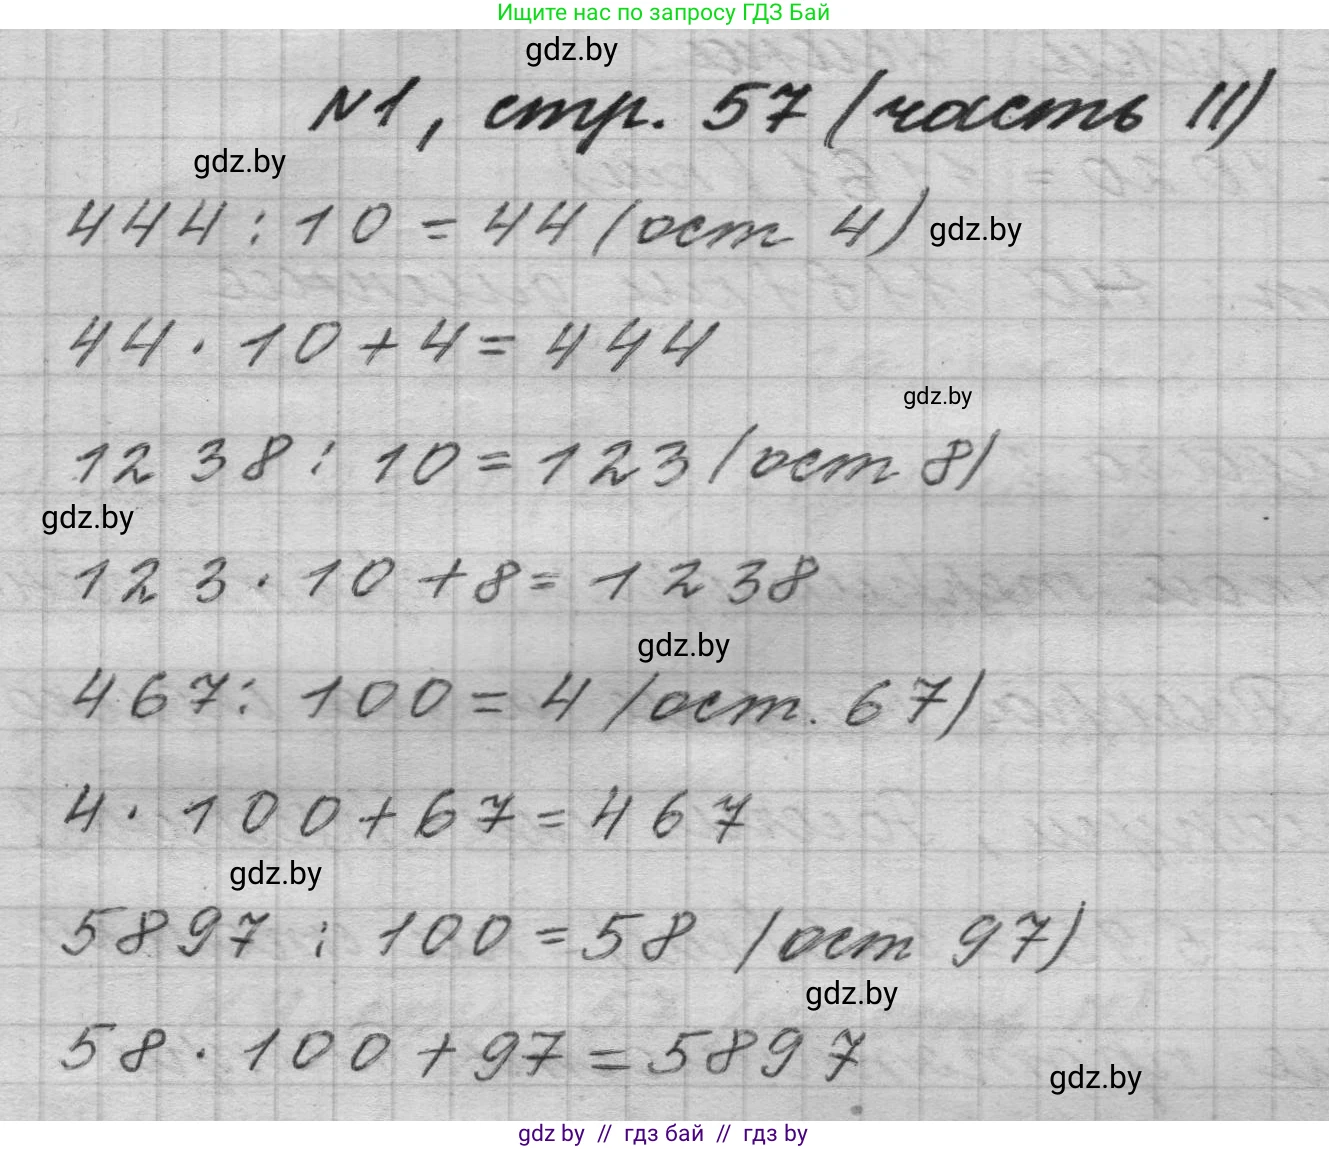 Ищите нас по запросу ГДЗ Бай
gdz.by
№1, стр. 57 (часть II)
gdz.by
444 : 10 = 44 (ост 4) gdz.by
44 · 10 + 4 = 444
gdz.by
1238 : 10 = 123 (ост 8)
gdz.by
123 · 10 + 8 = 1238
gdz.by
467 : 100 = 4 (ост. 67)
4 · 100 + 67 = 467
gdz.by
5897 : 100 = 58 (ост 97)
gdz.by
58 · 100 + 97 = 5897
gdz.by
gdz by // гдз бай // гдз by